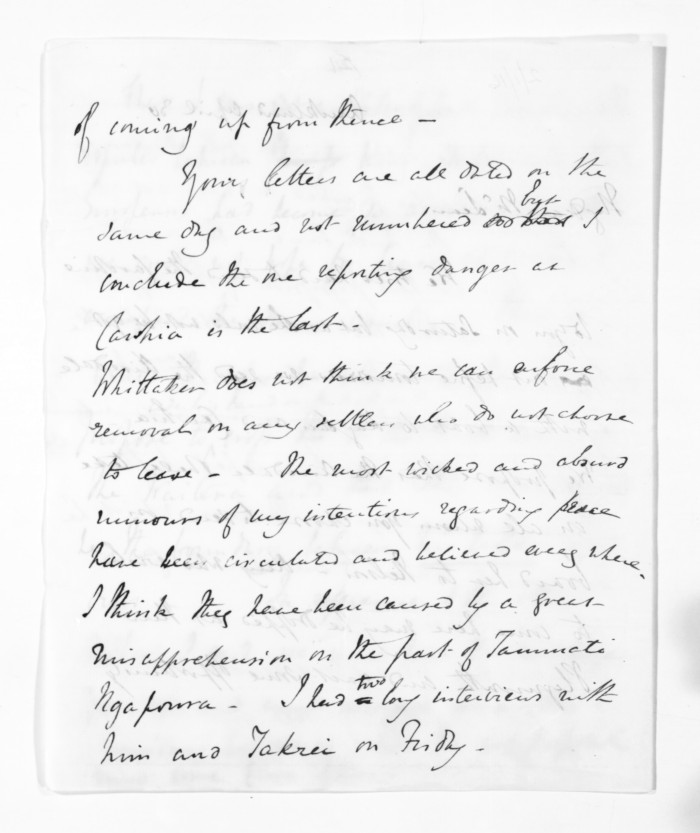 of coming up from thence -
Your letters are all dated on the
same day and not numbered but I
conclude the one reporting danger at
Cawhia is the last -
Whittaker does not think we can enforce
removal on any settlers who do not choose
to leave - The most wicked and absurd
rumours of my intentions regarding peace
have been circulated and believed every where.
I think they have been caused by a great
misapprehension on the part of Tammati
Ngapowra - I had two long interviews with
him and Takrei on Friday -